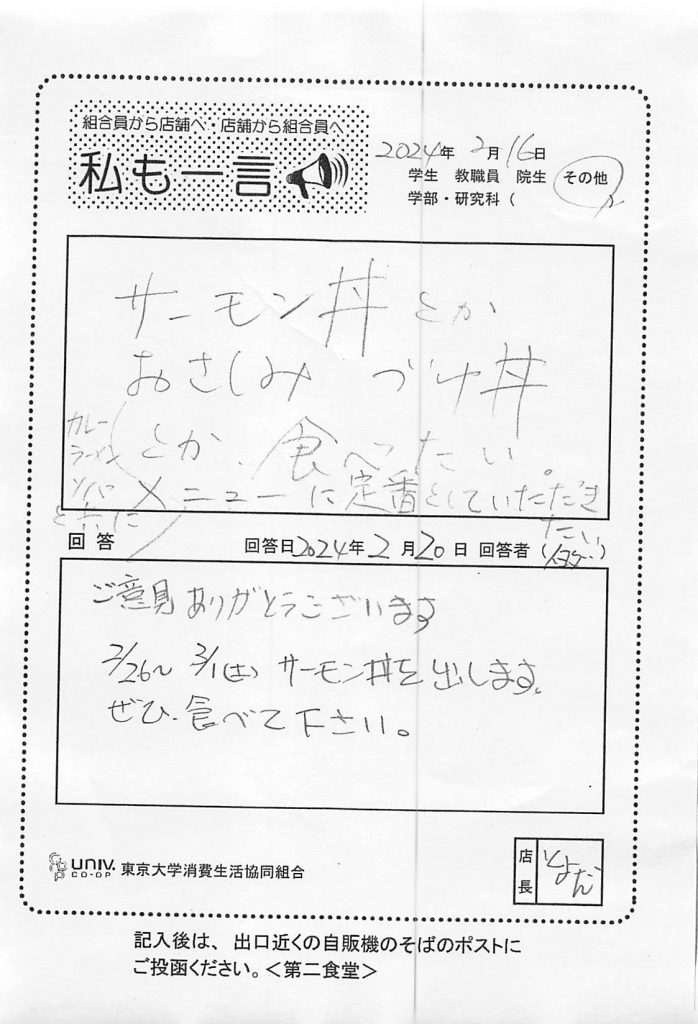 組合員から店舗へ・店舗から組合員へ
私も一言
2024年 2月 16日
学生 教職員 院生 その他
学部・研究科（
サーモン丼とか
おさしみ づけ丼
とか、食べたい。
カレー
ラーメン
ソバ
と共に
メニューに定番としていただき
たい
回答 回答日2024年2月20日 回答者
ご意見ありがとうございます
2/26〜3/1(土) サーモン丼を出します。
ぜひ、食べて下さい。
UNIV. CO-OP 東京大学消費生活協同組合
店長 とよだ
記入後は、出口近くの自販機のそばのポストに
ご投函ください。＜第二食堂＞